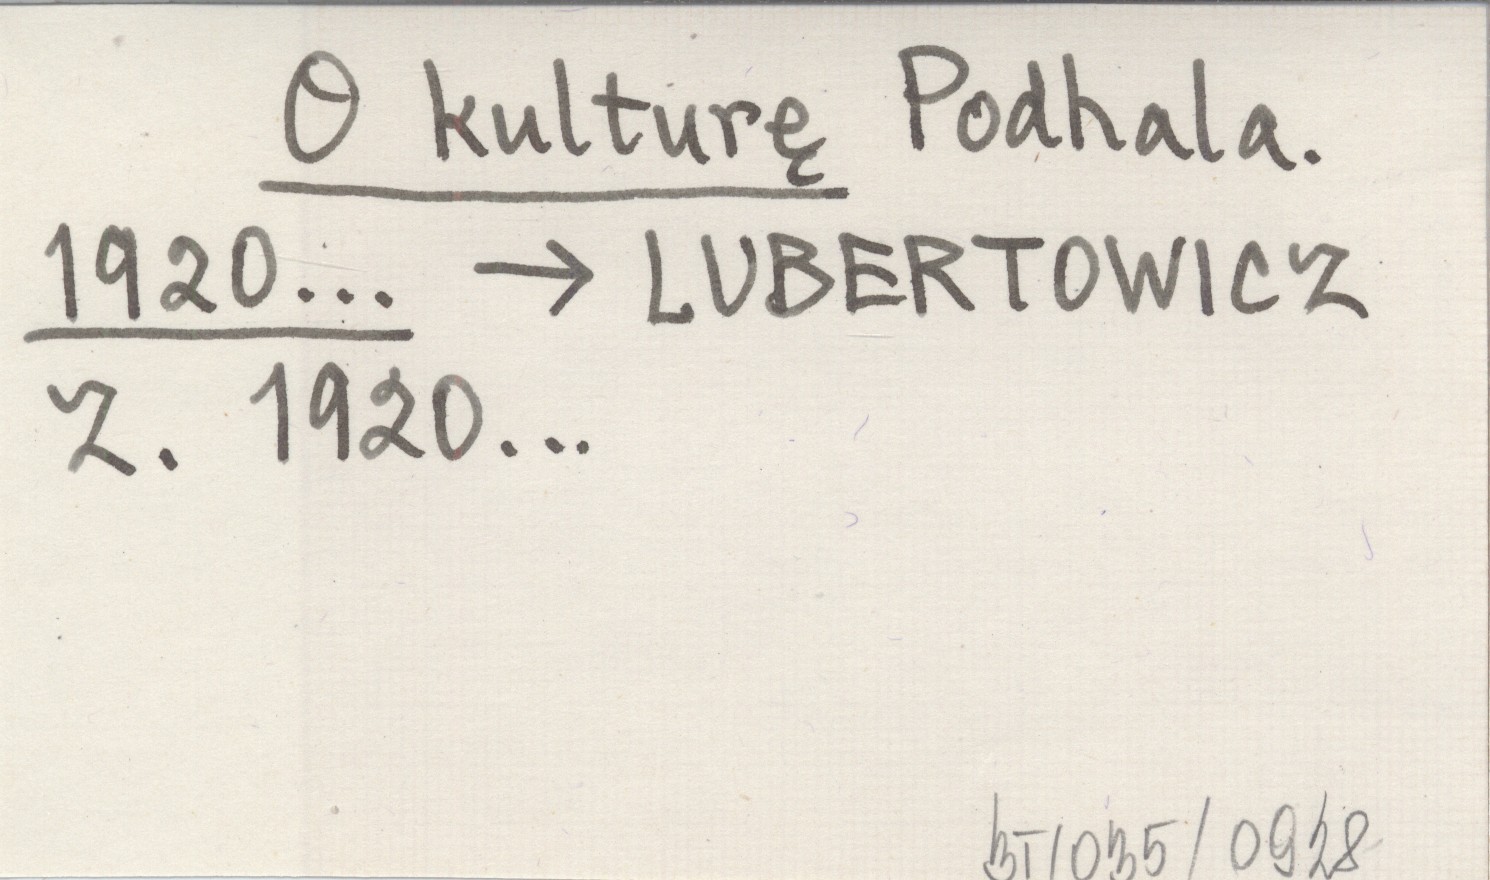 O kulturę Podhala.
1920... → LUBERTOWICZ
Z. 1920...
BT/035/0928